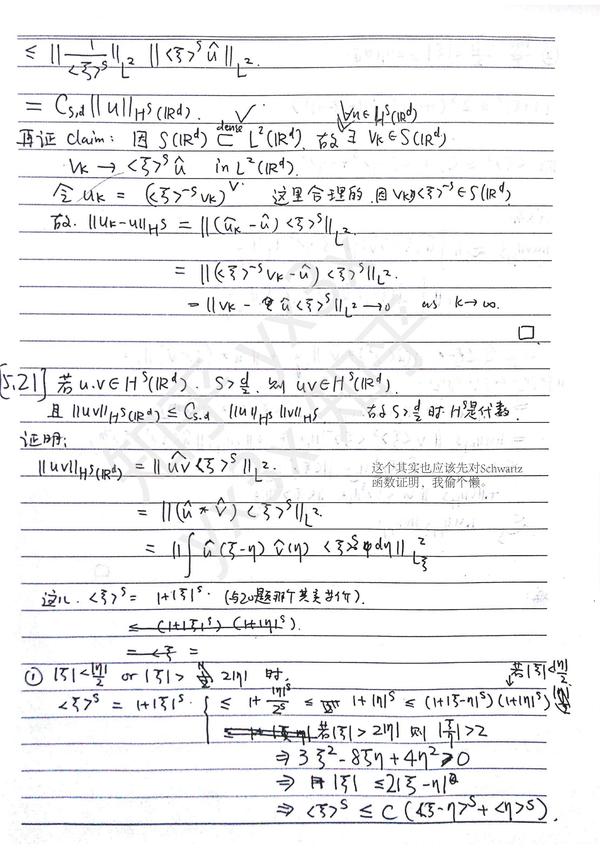 ≤ || 1/<ξ>^s ||_{L^2} || <ξ>^s û ||_{L^2}.
= C_{s,d} ||u||_{H^s(ℝ^d)}.
∀u∈H^s(ℝ^d)
再证 Claim: 因 S(ℝ^d) ⊂^{dense} L^2(ℝ^d), 故 ∃ v_k ∈ S(ℝ^d)
v_k → <ξ>^s û in L^2(ℝ^d).
令 u_k = (<ξ>^{-s} v_k)^∨. 这里合理的, 因 v_k <ξ>^{-s} ∈ S(ℝ^d)
故. ||u_k - u||_{H^s} = ||(û_k - û) <ξ>^s||_{L^2}.
= ||(<ξ>^{-s} v_k - û) <ξ>^s||_{L^2}.
= ||v_k - û <ξ>^s||_{L^2} → 0 as k→∞.
□.
[5.21] 若 u.v ∈ H^s(ℝ^d). s > d/2. 则 uv ∈ H^s(ℝ^d).
且 ||uv||_{H^s(ℝ^d)} ≤ C_{s.d} ||u||_{H^s} ||v||_{H^s} 故 s > d/2 时 H^s 是代数.
证明:
||uv||_{H^s(ℝ^d)} = || ûv <ξ>^s ||_{L^2}.
这个其实也应该先对Schwartz
函数证明，我偷个懒。
= ||(û * v̂) <ξ>^s||_{L^2}.
= || ∫ û(ξ-η) v̂(η) <ξ>^s dη ||_{L^2_ξ}
这儿. <ξ>^s = 1+|ξ|^s. (与20题那个其实等价).
≤ (1+|ξ|^s) (1+|η|^s).
= <ξ =
① |ξ| < |η|/2 or |ξ| > 2|η| 时.
若|ξ|<|η|/2
<ξ>^s = 1+|ξ|^s. { ≤ 1+ |η|^s/2^s ≤ 1+|η|^s ≤ (1+|ξ-η|^s)(1+|η|^s)
若|ξ| > 2|η| 则 |ξ/η| > 2
⇒ 3ξ^2 - 8ξη + 4η^2 ≥ 0
⇒ |ξ| ≤ 2|ξ-η|
⇒ <ξ>^s ≤ C (<ξ-η>^s + <η>^s).